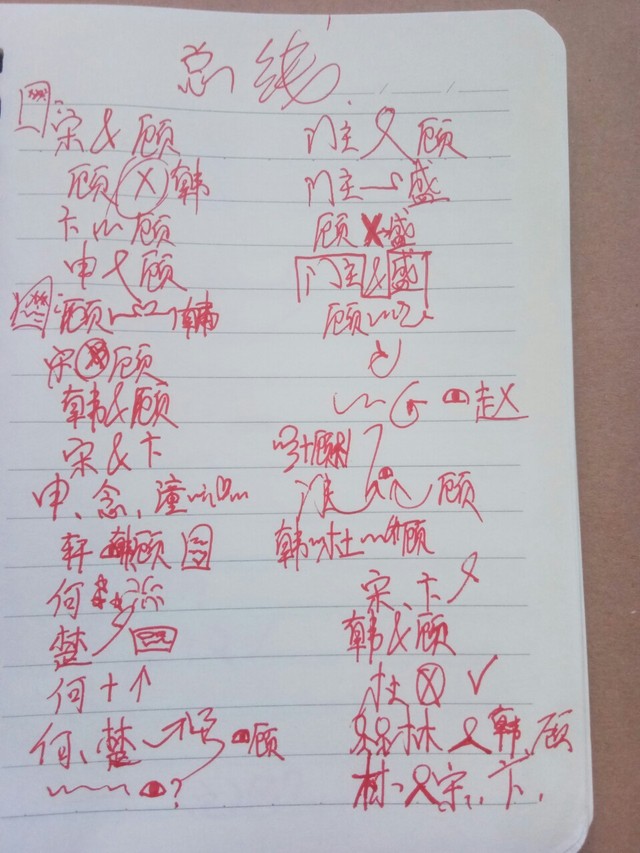 总线
宋&顾
顾 X 韩
卞 顾
申 顾
顾 韩
宋 X 顾
韩&顾
宋&卞
申、念、潼
轩 韩顾
何
楚
何+↑
何、楚 顾
?
门主 顾
门主 盛
顾 X 盛
门主&盛
顾
赵
顾
韩 杜 顾
宋、卞
韩&顾
杜 X ✓
林 韩、顾
林 宋、卞、